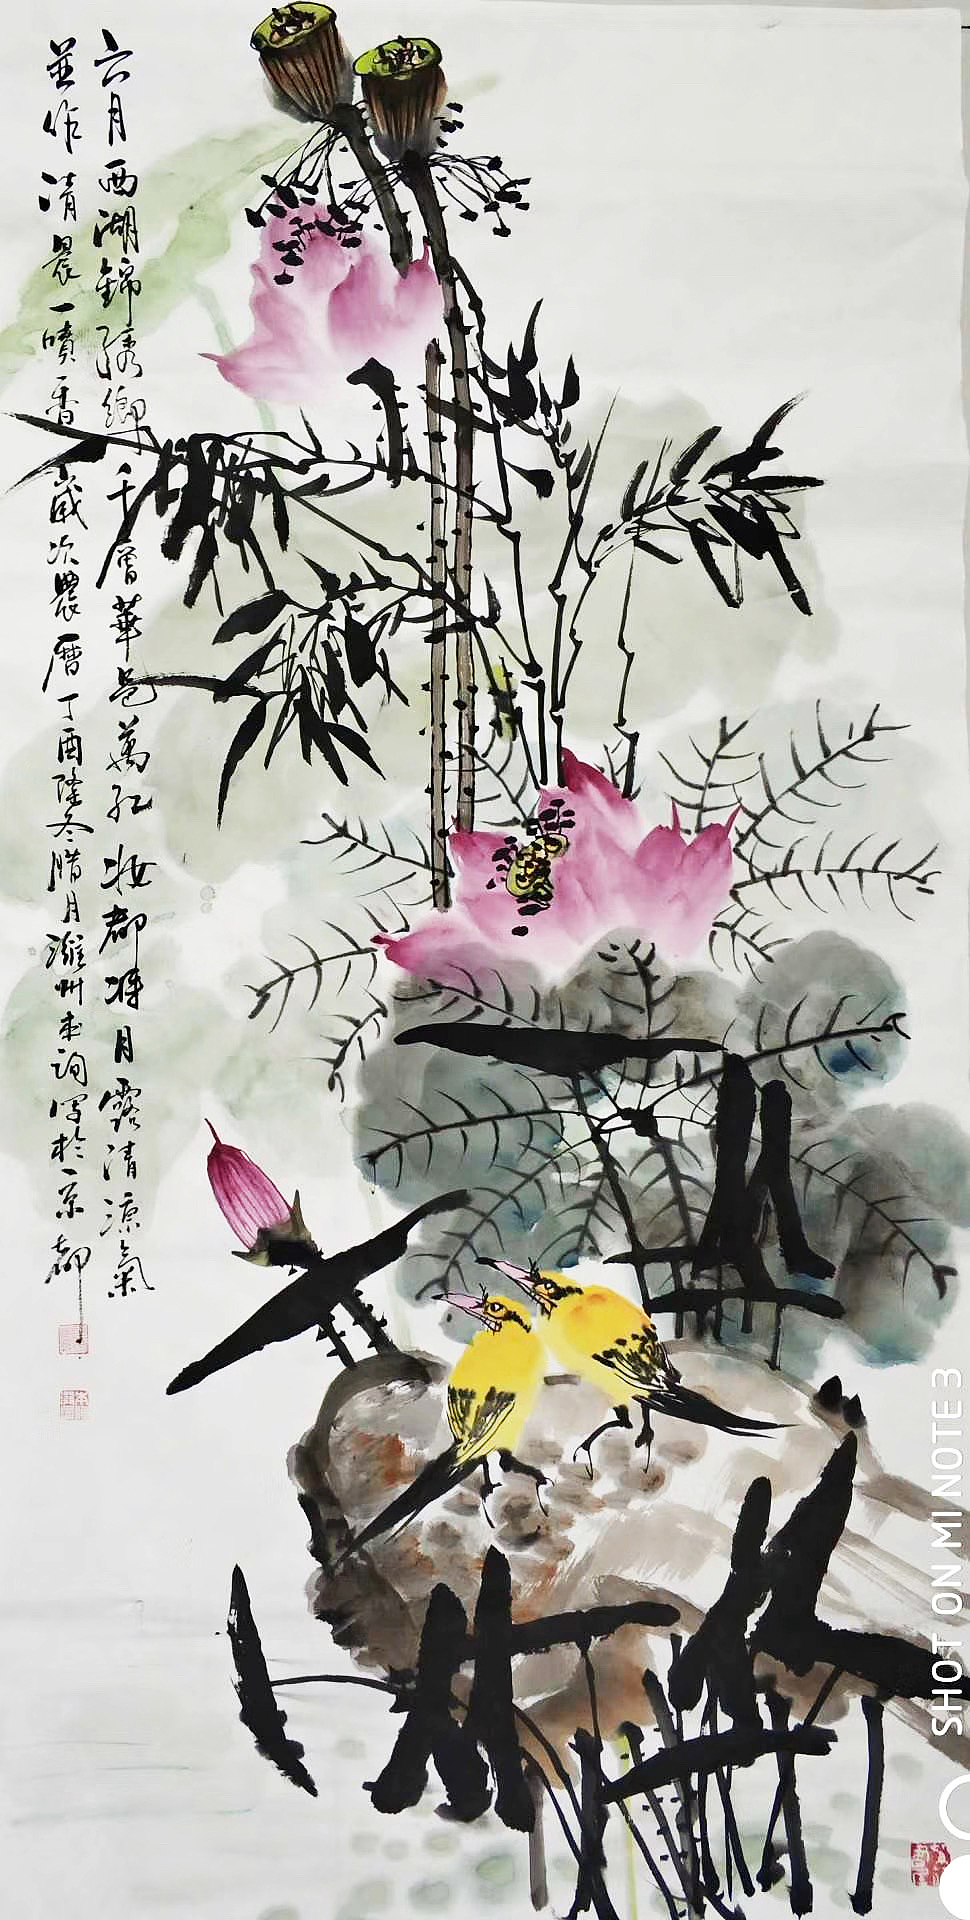 六月西湖錦綉鄉千層華色萬红妆都将月露清凉氣
並作清晨一噴香 歲次農曆丁酉隆冬臘月濰州詢写於京都
SHOT ON MI NOTE 3